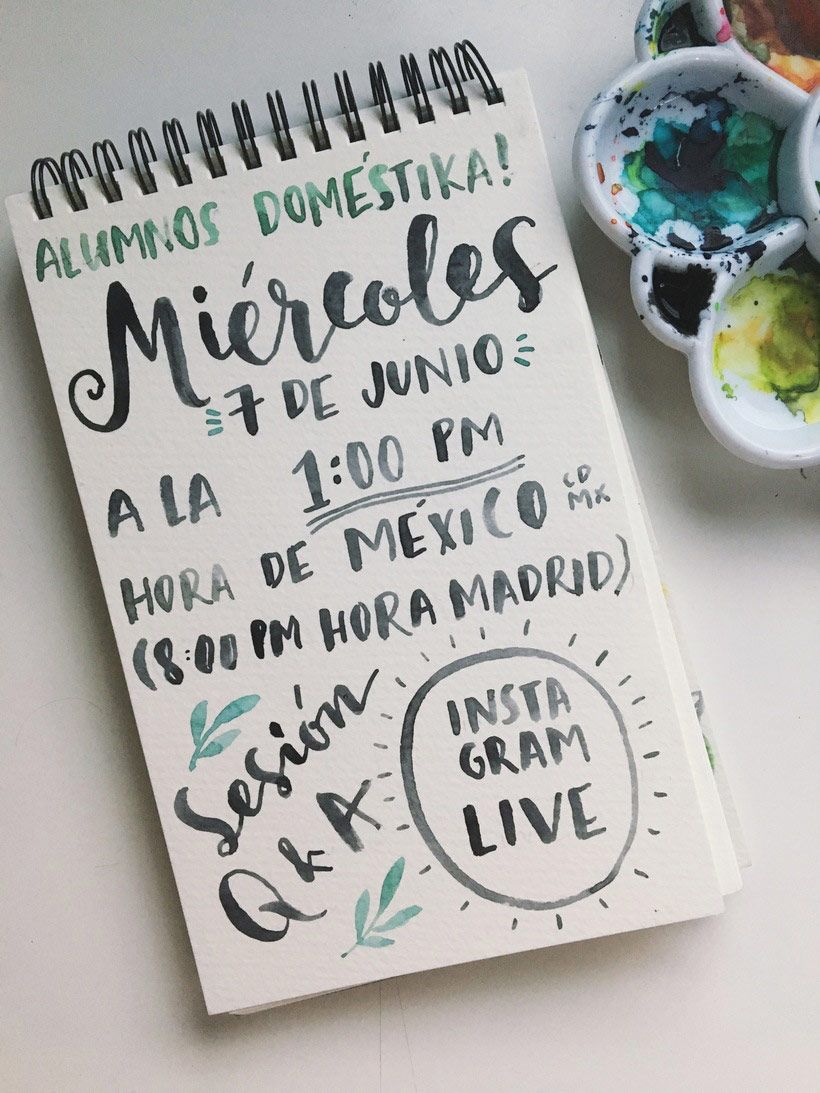 ALUMNOS DOMÉSTIKA!
Miércoles
7 DE JUNIO
A LA 1:00 PM
HORA DE MÉXICO CD MX
(8:00 PM HORA MADRID)
Sesión
Q & A
INSTA
GRAM
LIVE